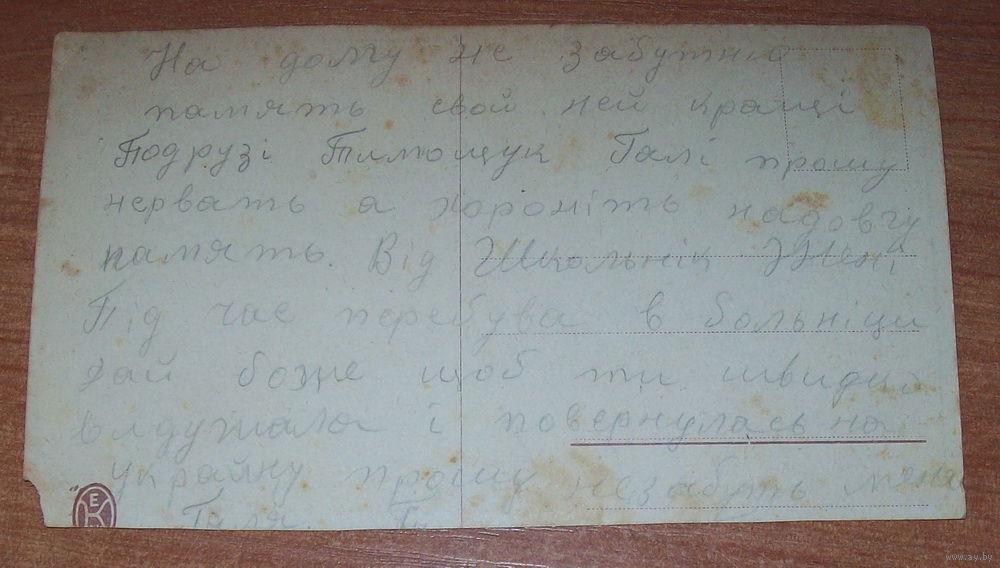 На долгу не забутню
память свой ней кращі
Подрузі Тимощук Галі прошу
нервать а хороніть надовгу
память. Від Школьнік Жені
Під час перебува в больніци
дай боже щоб ти швидко
видужала і повернулась на
украйну прошу незабуть мене
Галя.
ЕК
www.ay.by